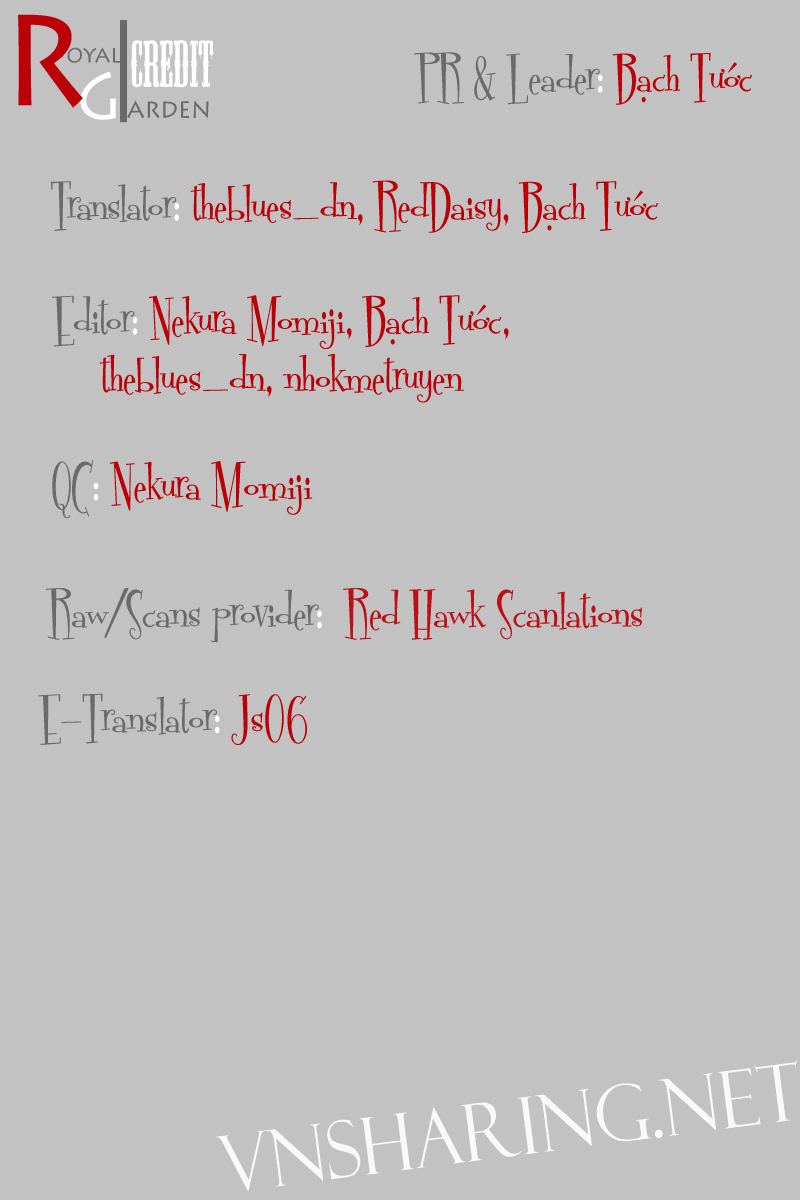 ROYAL GARDEN CREDIT
PR & Leader: Bạch Tước
Translator: theblues_dn, RedDaisy, Bạch Tước
Editor: Nekura Momiji, Bạch Tước,
theblues_dn, nhokmetruyen
QC: Nekura Momiji
Raw/Scans provider: Red Hawk Scanlations
E-Translator: Js06
VNSHARING.NET